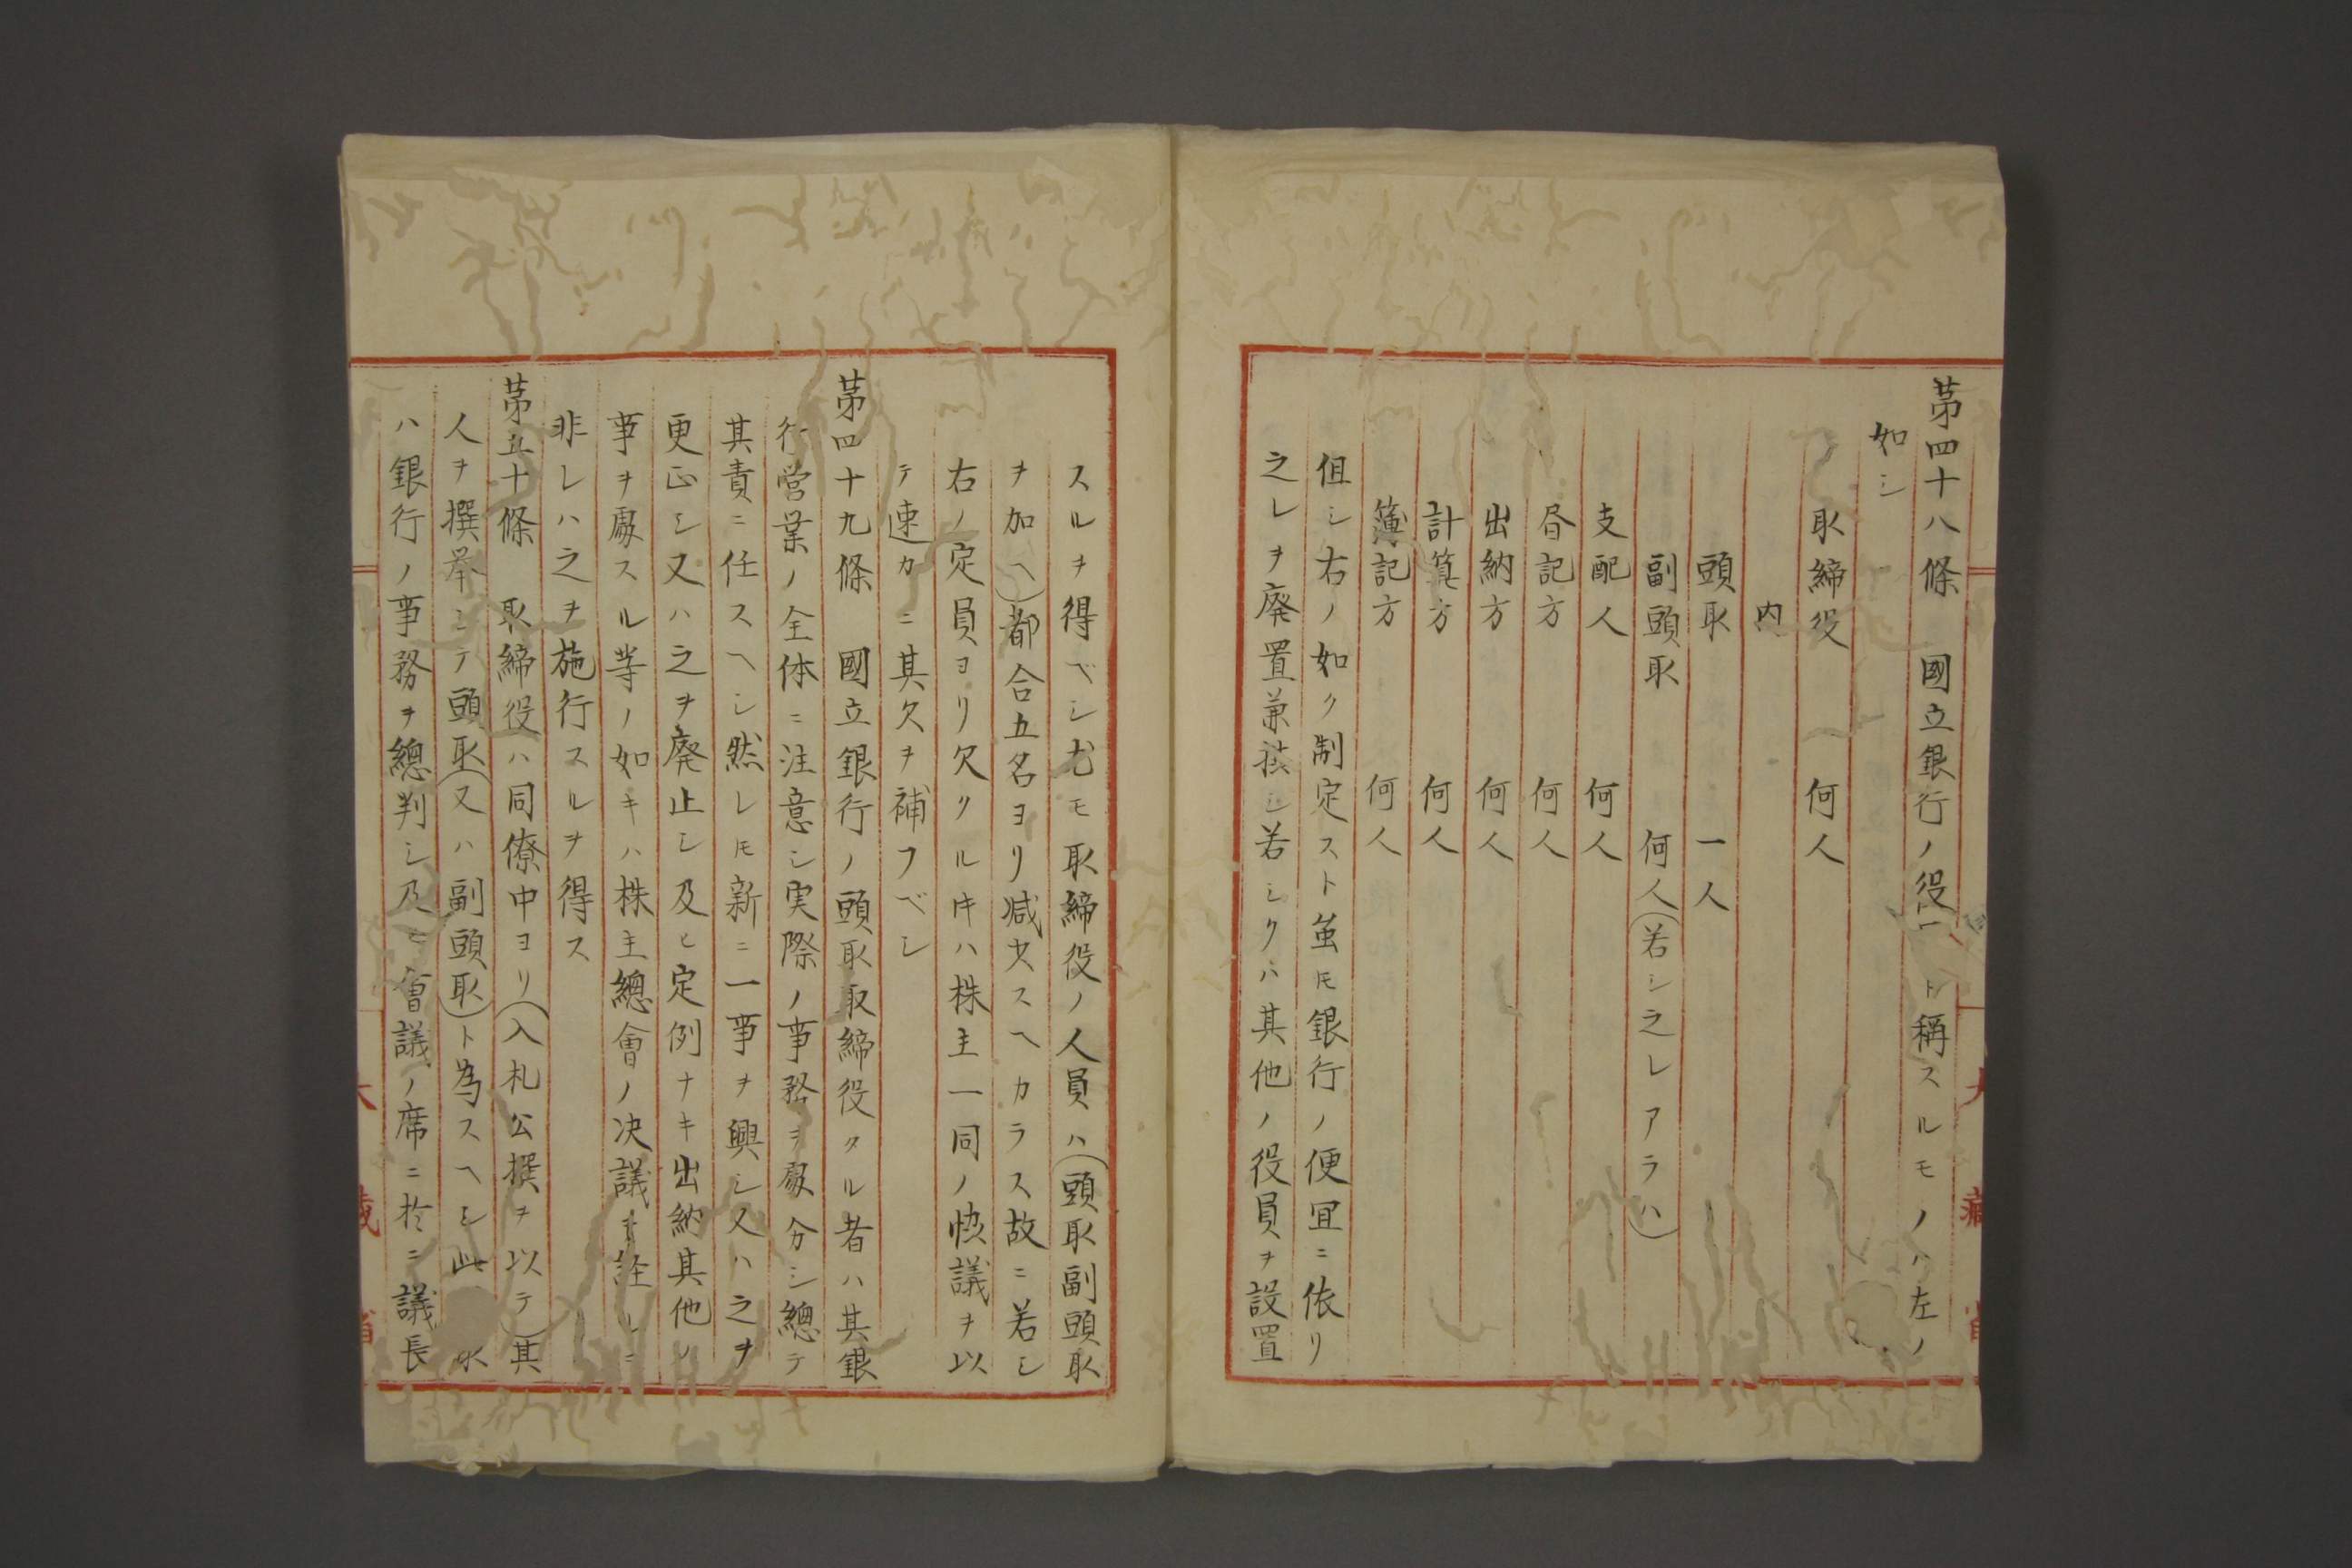 第四十八條　國立銀行ノ役員ト稱スルモノハ左ノ
如シ
取締役　何人
内
頭取　一人
副頭取　何人（若シ之レアラハ）
支配人　何人
書記方　何人
出納方　何人
計算方　何人
簿記方　何人
但シ右ノ如ク制定スト虽𪜈銀行ノ便冝ニ依リ
之レヲ廃置兼摂シ若シクハ其他ノ役員ヲ設置
スルヲ得ベシ尤モ取締役ノ人員ハ（頭取副頭取
ヲ加ヘ）都合五名ヨリ减少スヘカラス故ニ若シ
右ノ定員ヨリ欠クル𪜈ハ株主一同ノ恊議ヲ以
テ速カニ其欠ヲ補フベシ
第四十九條　國立銀行ノ頭取取締役タル者ハ其銀
行営業ノ全体ニ注意シ実際ノ事務ヲ處分シ總テ
其責ニ任スヘシ然レ𪜈新ニ一事ヲ興シ又ハ之ヲ
更正シ又ハ之ヲ廃止シ及ヒ定例ナキ出納其他ノ
事ヲ處スル等ノ如キハ株主總會ノ决議ヲ註ルニ
非レハ之ヲ施行スルヲ得ス
第五十條　取締役ハ同僚中ヨリ（入札公撰ヲ以テ）其
人ヲ撰挙シテ頭取（又ハ副頭取）ト為スヘシ此
ハ銀行ノ事務ヲ總判シ及ヒ會議ノ席ニ於ニ議長
大藏省